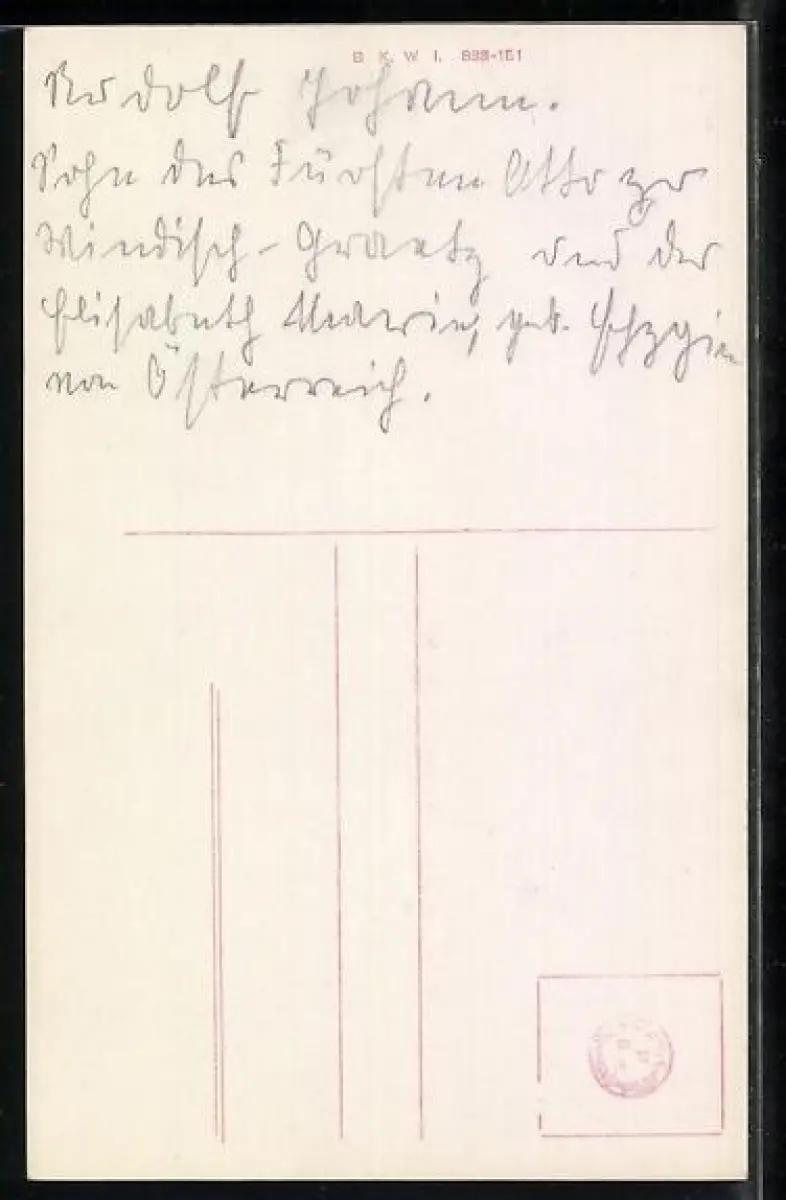 B. K. W. I. 888-151
Rudolf Johann.
Sohn des Fürsten Otto zu
Windisch-Graetz und der
Elisabeth Marie, geb. Erzgin
von Österreich.